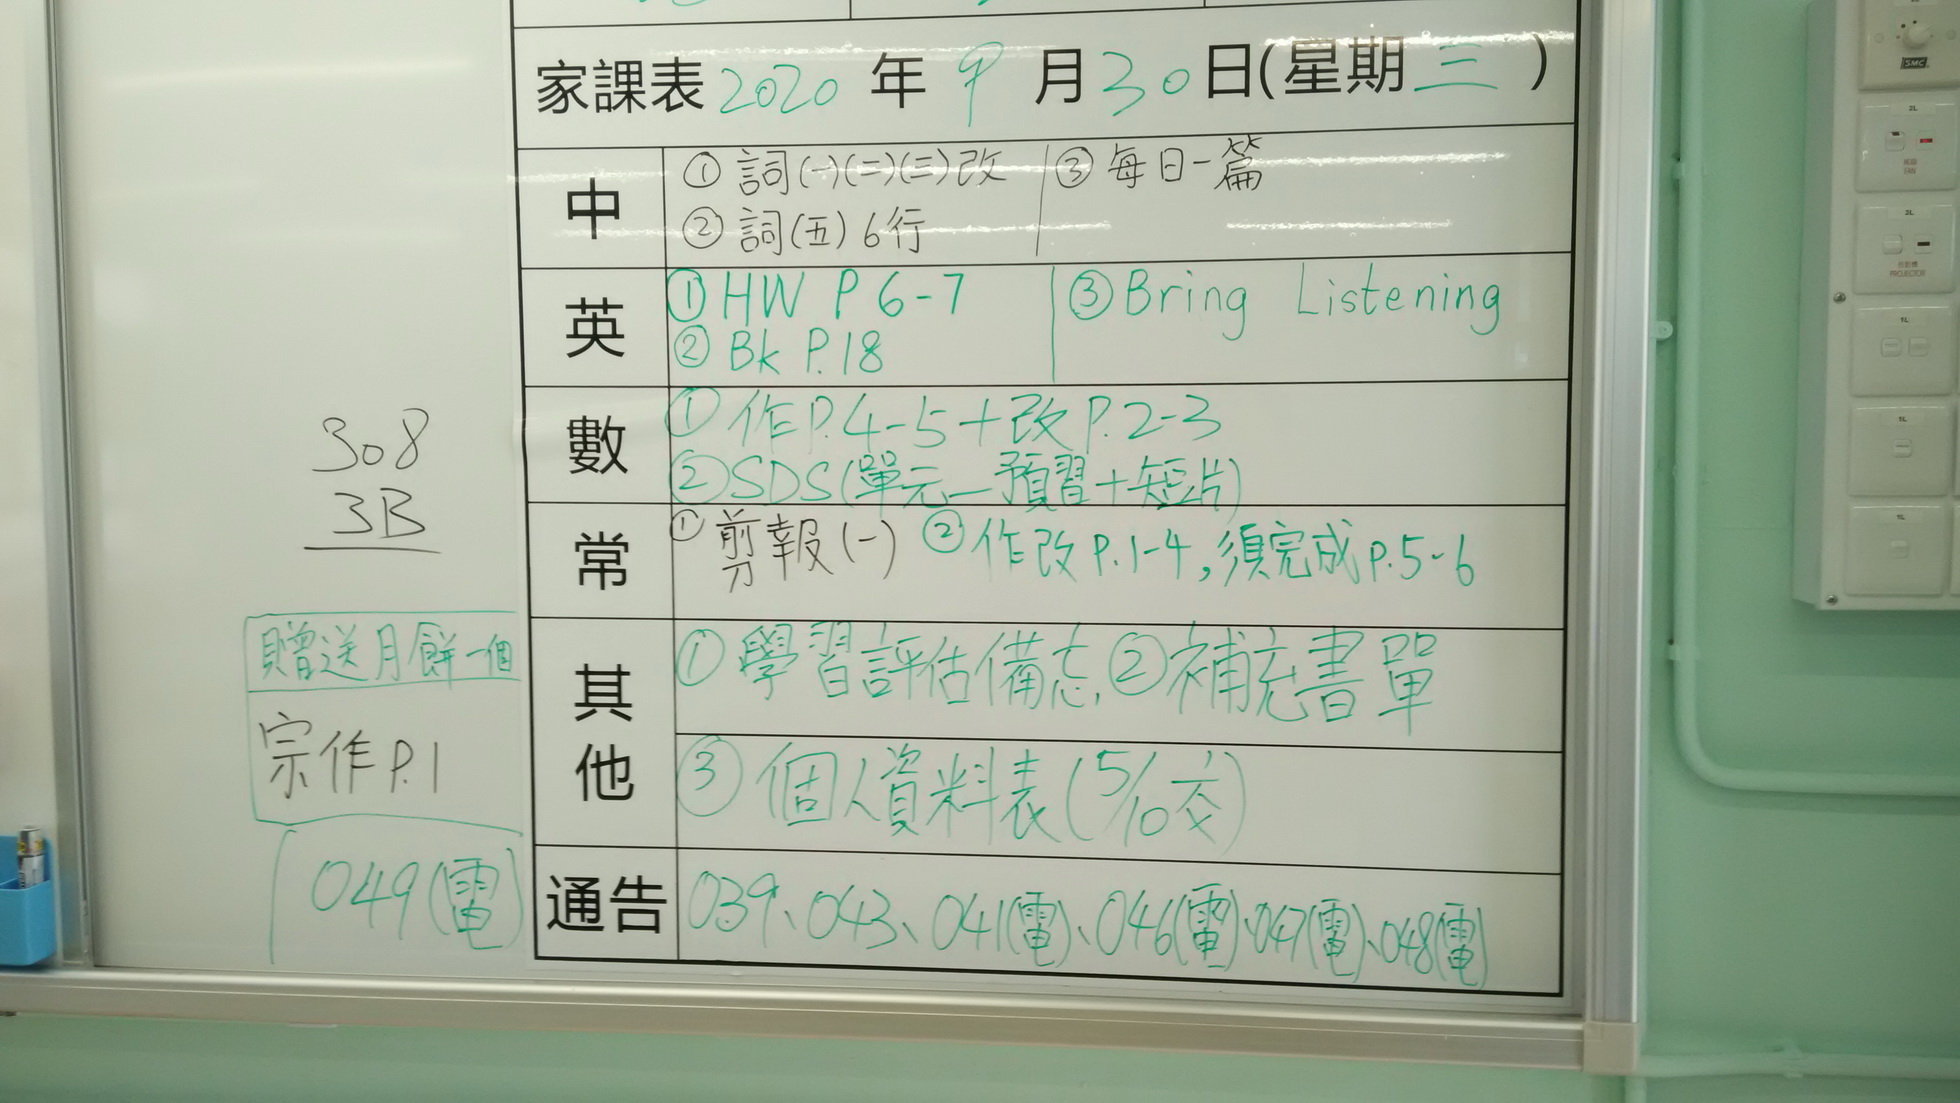 家課表 2020 年 9 月 30 日(星期 三 )
中
① 詞(一)(二)(三)改
② 詞(五) 6行
③ 每日一篇
英
① HW P 6-7
② Bk P.18
③ Bring Listening
數
① 作P.4-5+改P.2-3
② SDS(單元一預習+短片)
常
① 剪報(一) ② 作改P.1-4,須完成P.5-6
其他
① 學習評估備忘 ② 補充書單
③ 個人資料表(5/10交)
通告
039、043、041(電)、046(電)、047(電)、048(電)
308
3B
贈送月餅一個
宗作P.1
049(電)
SMC
2L
FAN
3L
PROJECTOR
1L
1L
1L